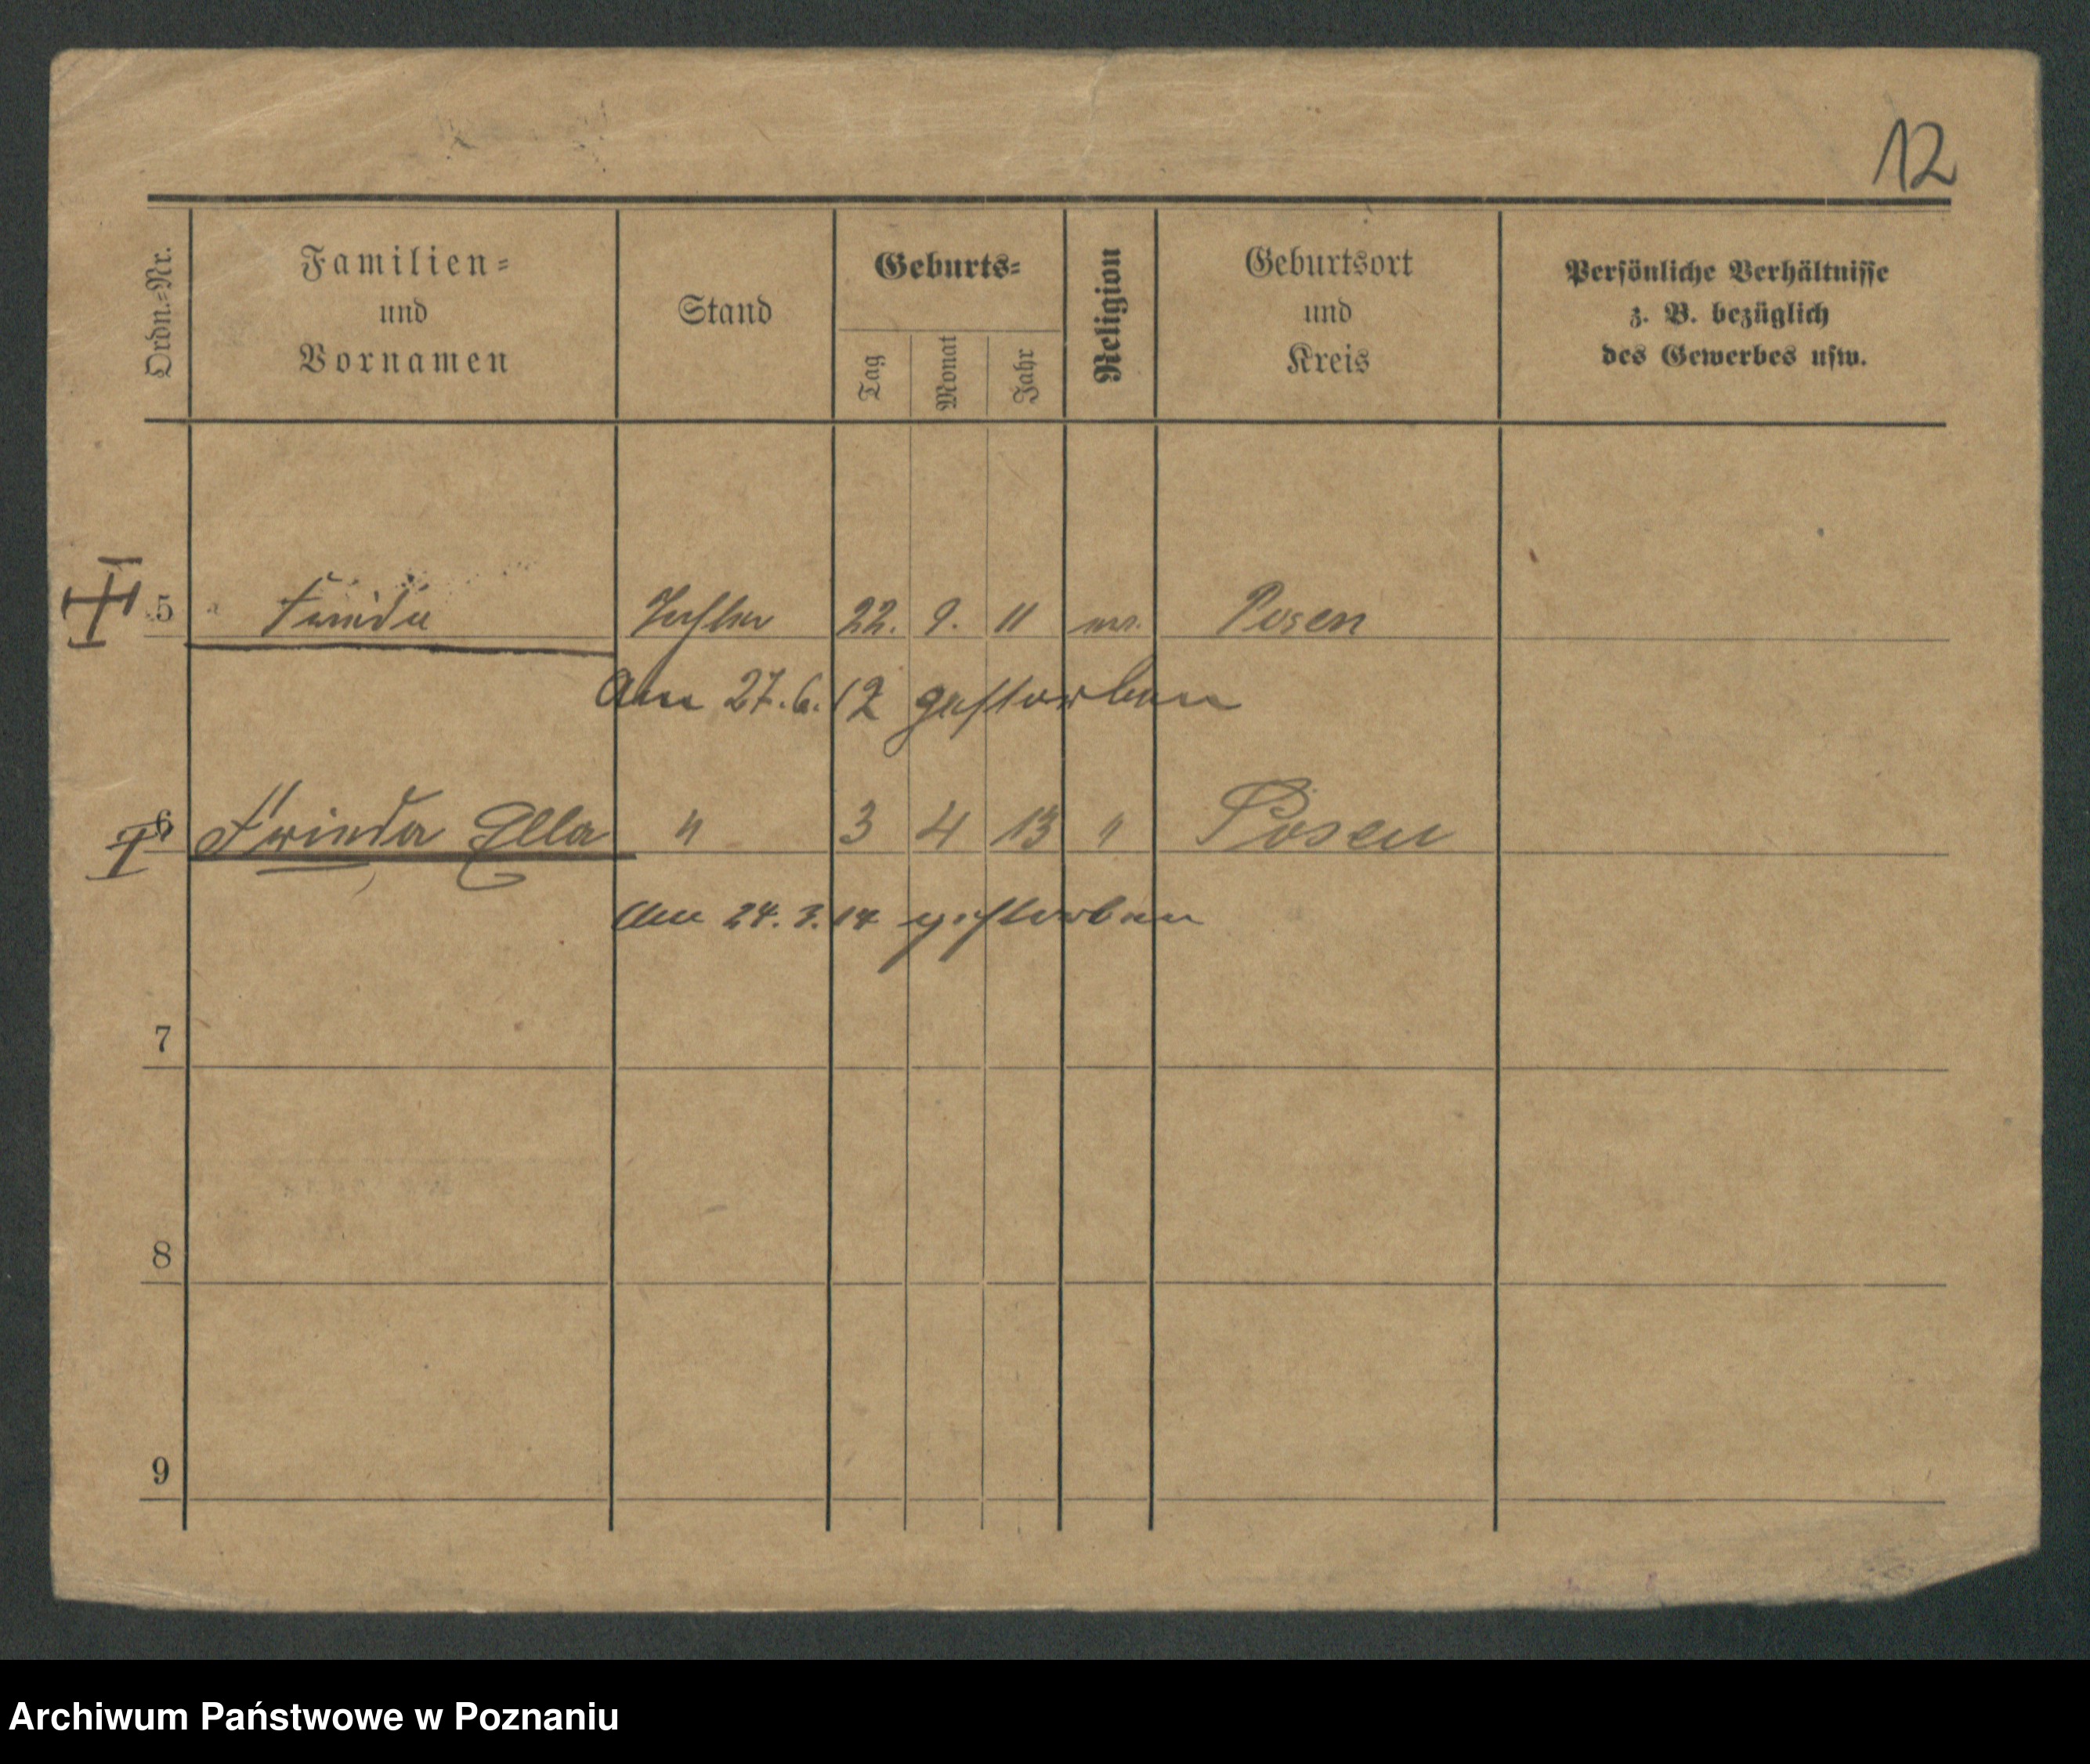 12
Ordn.-Nr.
Familien-
und
Vornamen
Stand
Geburts-
Tag
Monat
Jahr
Religion
Geburtsort
und
Kreis
Persönliche Verhältnisse
z. B. bezüglich
des Gewerbes usw.
5 Frieda Tochter 22. 9. 11 Posen
Am 27.6.12 gestorben
6 Frieda Ella " 3 4 13 " Posen
Am 24.3.14 gestorben
7
8
9
Archiwum Państwowe w Poznaniu